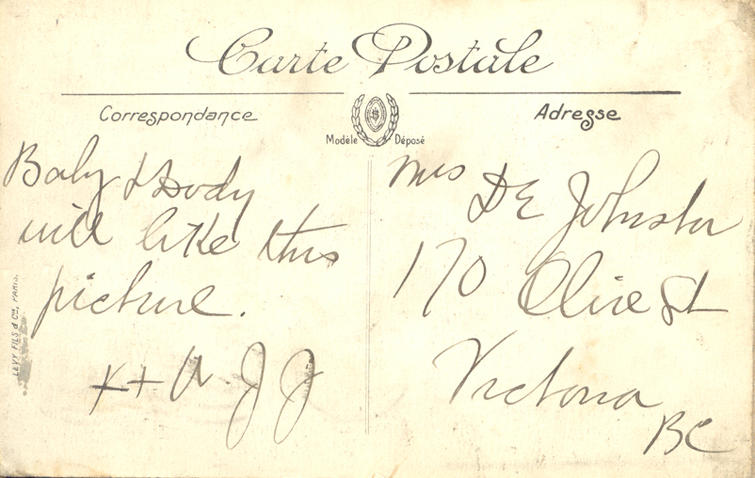 Carte Postale
Correspondance
Adresse
Modèle Déposé
Baby & Dody
will like this
picture.
x + A. J J
Mrs DE Johnston
170 Olive St
Victoria
BC
LEVY FILS & Cie, PARIS.